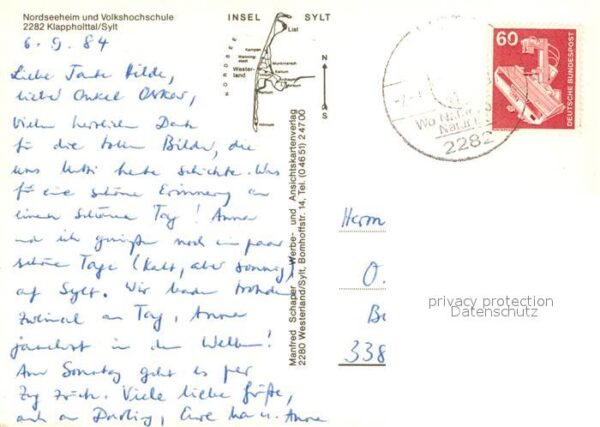 Nordseeheim und Volkshochschule
2282 Klappholttal/Sylt
6. 9. 84
Liebe Tante Hilde,
lieber Onkel Oskar,
Vielen herzlichen Dank
für die tollen Bilder, die
uns Mutti heute schickte. Was
für eine schöne Erinnerung an
einen schönen Tag! Anne
und ich genießen noch ein paar
schöne Tage (kalt, aber sonnig)
auf Sylt. Wir baden trotzdem
zweimal am Tag, Anne
jauchzt in den Wellen!
Am Sonntag geht es per
Zug zurück. Viele liebe Grüße,
auch an Eure u. Anne
INSEL SYLT
NORDSEE
List
Kampen
Westerland
Munkmarsch
Keitum
N
S
Manfred Schaper Werbe- und Ansichtskartenverlag
2280 Westerland/Sylt, Bomhoffstr. 14, Tel. (0 46 51) 2 47 00
60
DEUTSCHE BUNDESPOST
Wo
Natur
2282
Herrn
O.
338
privacy protection
Datenschutz